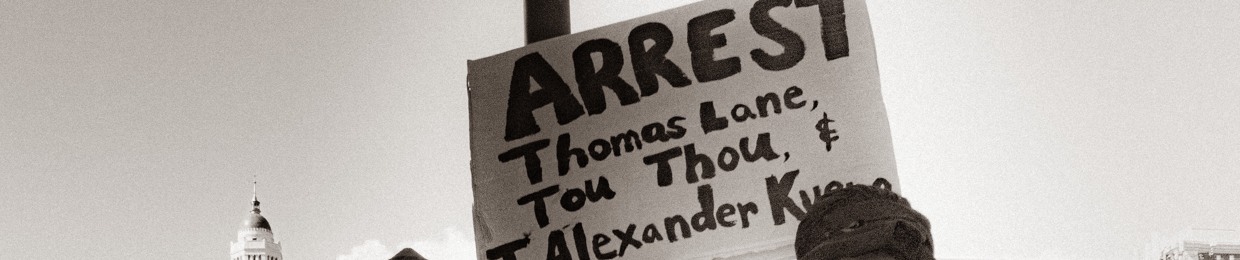 ARREST
Thomas Lane,
Tou Thou, &
J Alexander Kueng